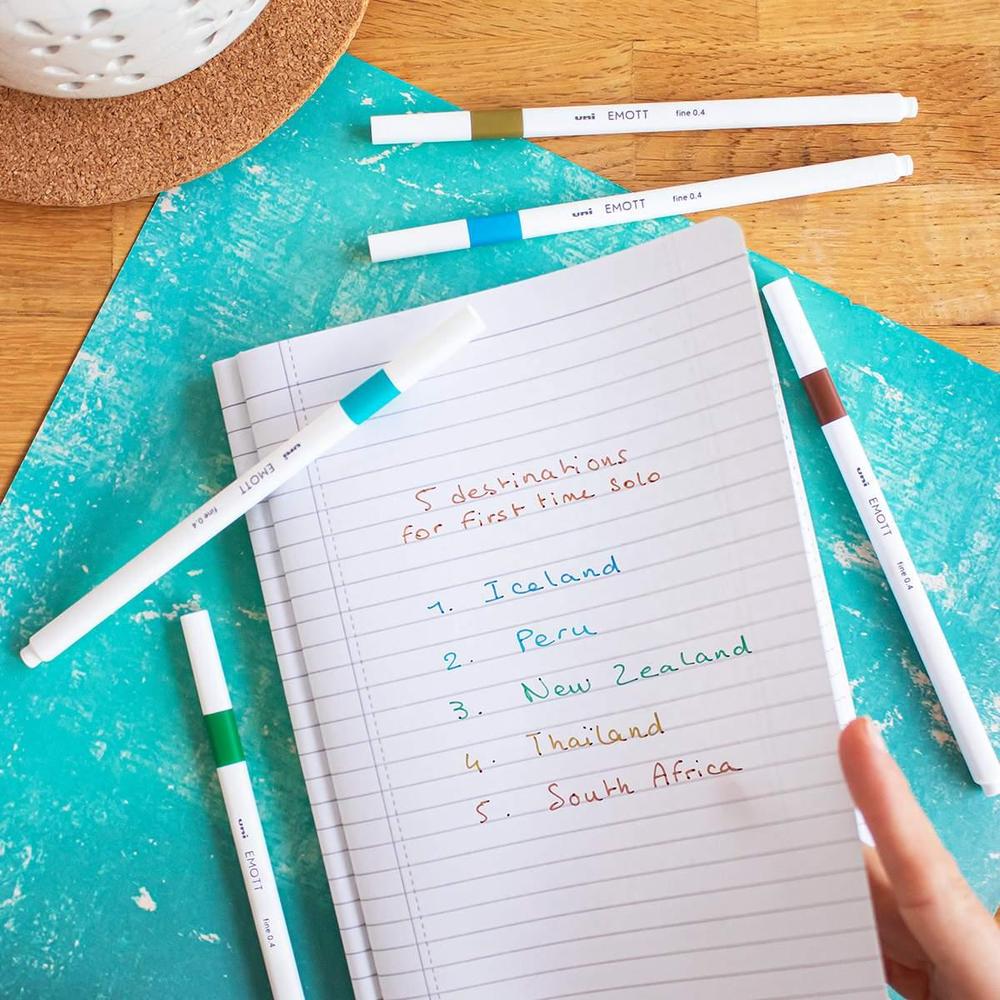 uni EMOTT fine 0.4
uni EMOTT fine 0.4
uni EMOTT fine 0.4
uni EMOTT fine 0.4
uni EMOTT fine 0.4
5 destinations
for first time solo
1. Iceland
2. Peru
3. New Zealand
4. Thailand
5. South Africa